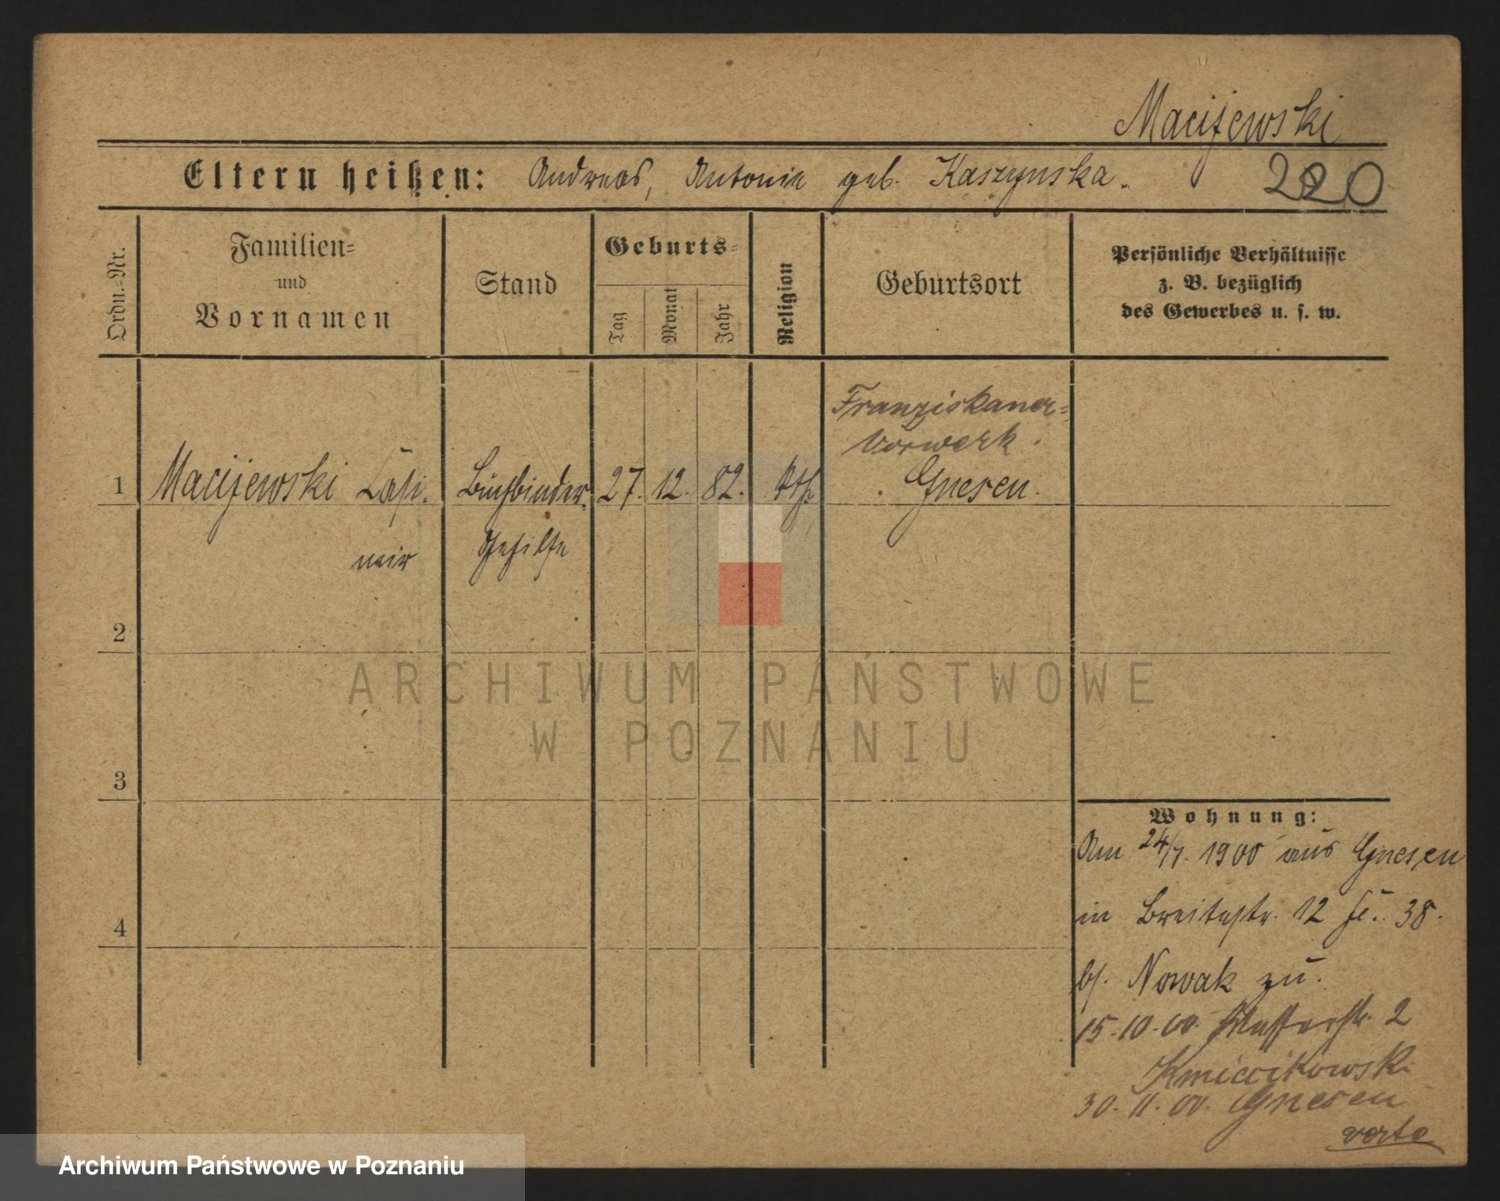 Macijewski
Eltern heißen: Andreas, Antonie geb. Kaszynska.
220
Ordn.-Nr.
Familien-
und
Vornamen
Stand
Geburts-
Tag
Monat
Jahr
Religion
Geburtsort
Persönliche Verhältnisse
z. B. bezüglich
des Gewerbes u. s. w.
Franziskaner-
Vorwerk.
1 Macijewski Casi- Buchbinder 27. 12. 82. kth Gnesen.
mir Gehilfe
2
3
4
Wohnung:
Am 24/7. 1900 aus Gnesen
in Breitestr. 12 38.
bei Nowak zu.
15.10.00. Wasserstr. 2
Kmiecikowski
30.11.00. Gnesen
verte
ARCHIWUM PAŃSTWOWE
W POZNANIU
Archiwum Państwowe w Poznaniu